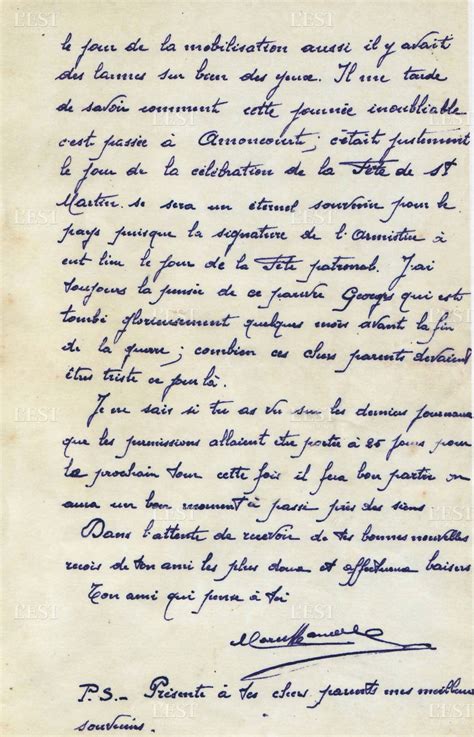 le jour de la mobilisation aussi il y avait
des larmes sur bien des yeux. Il me tarde
de savoir comment cette journée inoubliable
c'est passée à Amoncourt; c'était justement
le jour de la célébration de la Fête de St
Martin. se sera un éternel souvenir pour le
pays puisque la signature de l'Armistice à
eut lieu le jour de la Fête patronal. J'ai
toujours la pensée de ce pauvre Georges qui est
tombé glorieusement quelques mois avant la fin
de la guerre; combien ces chers parents devaient
êtres triste ce jour là.
Je ne sais si tu as vu sur les derniers journaux
que les permissions allaient être portée à 25 jours pour
le prochain tour cette fois il fera bon partir on
aura un bon moment à passé près des siens
Dans l'attente de recevoir de tes bonnes nouvelles
reçois de ton ami les plus doux et affectueux baisers
Ton ami qui pense à toi
P.S.- Présente à tes chers parents mes meilleurs
souvenirs.
L'EST